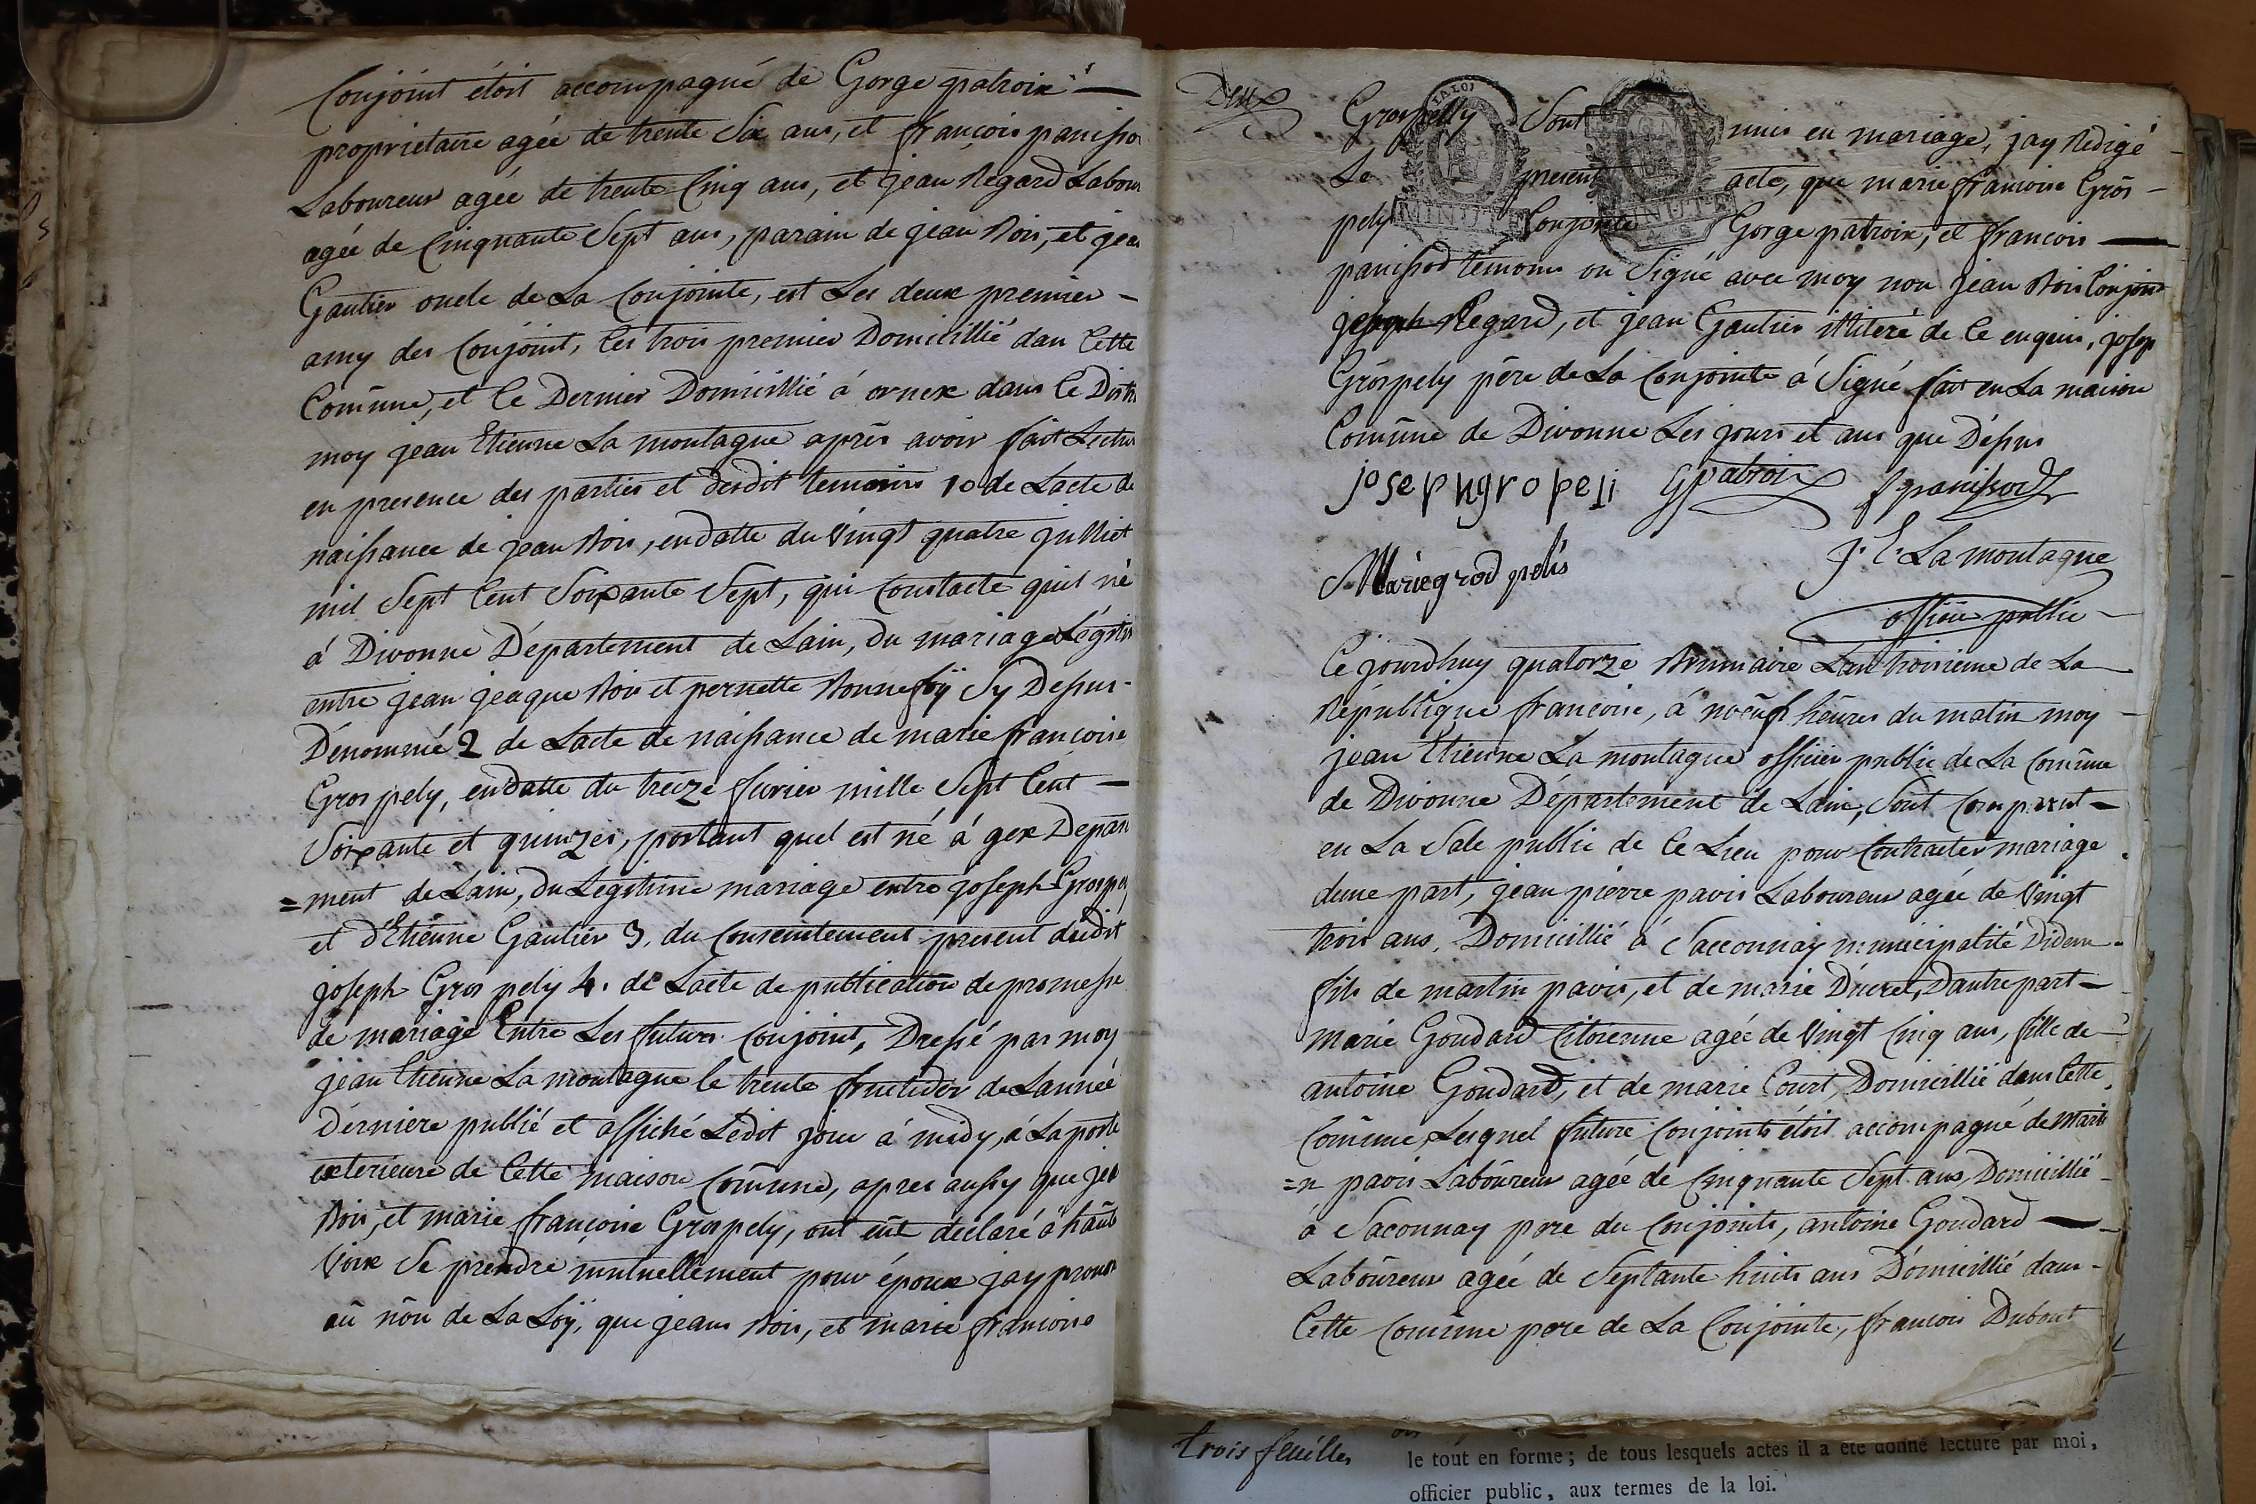 Conjoint étoit accompagné de Gorge patroix
proprietaire agée de trente Six ans, et françois panisso
Laboureur agée de trente Cinq ans, et jean Regard Labou
agée de Cinquante Sept ans, parain de jean Rois, et jea
Gautier oncle de La Conjointe, est Les deux premier
amy des Conjoint, les trois premier Domicillié dan Cette
Commune, et le Dernier Domicillié á ornex dans le Distr
moy jean Etienne La montagne aprés avoir fait Lectu
en presence des parties et desdit temoins 1o de Lacte de
naissance de jean Rois, en datte du Vingt quatre julliet
mil Sept Cent Soixante Sept, qui Constacte quil né
á Divonne Département de Lain, du mariage Légiti
entre jean jeaque Rois et pernette Bonnefoÿ Sy Dessus
Dénommé 2 de Lacte de naissance de marie françoise
Gros pely, en datte du treize fevrier mille Sept Cent
Soixante et quinzes, portant quel est né á gex Depar
=ment de Lain, du Legitime mariage entre joseph Grospe
et d'Etienne Gautier 3. du Consentement present dudit
joseph Gros pely 4. de Lacte de publication de promesse
de mariage Entre Les futurs Conjoint, Dressé par moy
jean Etienne La montagne le trente fructidor de Lannée
dérniere publié et affiché Ledit jour á midy, á La porte
exterieure de Cette maison Commune, apres aussy que jea
Rois, et marie françoise Grospely, ont eut déclaré á haute
Voix Se prendre mutuellement pour époux jay pronon
au nom de La Loÿ, que jean Rois, et marie francoise
Deux
Grospelly Sont unis en mariage, jay Redigé
Le present acte, que marie francoise Gros
LA LOI
MINUTE
pely Conjointe Gorge patroix, et francois
panissod temoins on Signé avec moy non jean Rois Conjoint
Regard, et jean Gautier illiteré de Ce enquis, josep
Grospely pére de La Conjointe á Signé fait en La maison
Commune de Divonne Les jours et ans que Dessus
josephgropeli GPatroix fpanissod
Mariegrod pelis J. E. La montagne
officier public
Ce jourdhuy quatorze Brumaire Lan troisieme de La
Republique francoise, á noeuf heures du matin moy
jean Etienne La montagne officier public de La Commune
de Divonne Département de Lain, Sont
en La Sale public de Ce Lieu pour Contracter mariage
dune part, jean pierre pavis Laboureur agée de Vingt
trois ans, Domicillié á Sacconnay municipalité Didem
fils de martin pavis, et de marie Ducret, Dautre part
marie Goudard Citoienne agée de Vingt Cinq ans, fille de
antoine Goudard, et de marie Court, Domicillié dans Cette
Commune, Lesquel future Conjoints étoit accompagné de Marti
=n pavis Laboureur agée de Cinquante Sept ans, Domicillié
á Saconnay pere du Conjoints, antoine Goudard
Laboureur agée de Septante huits ans Domicillié dans
Cette Commune pere de La Conjointe, francois Dubout
trois feuilles
le tout en forme ; de tous lesquels actes il a été donné lecture par moi,
officier public, aux termes de la loi.